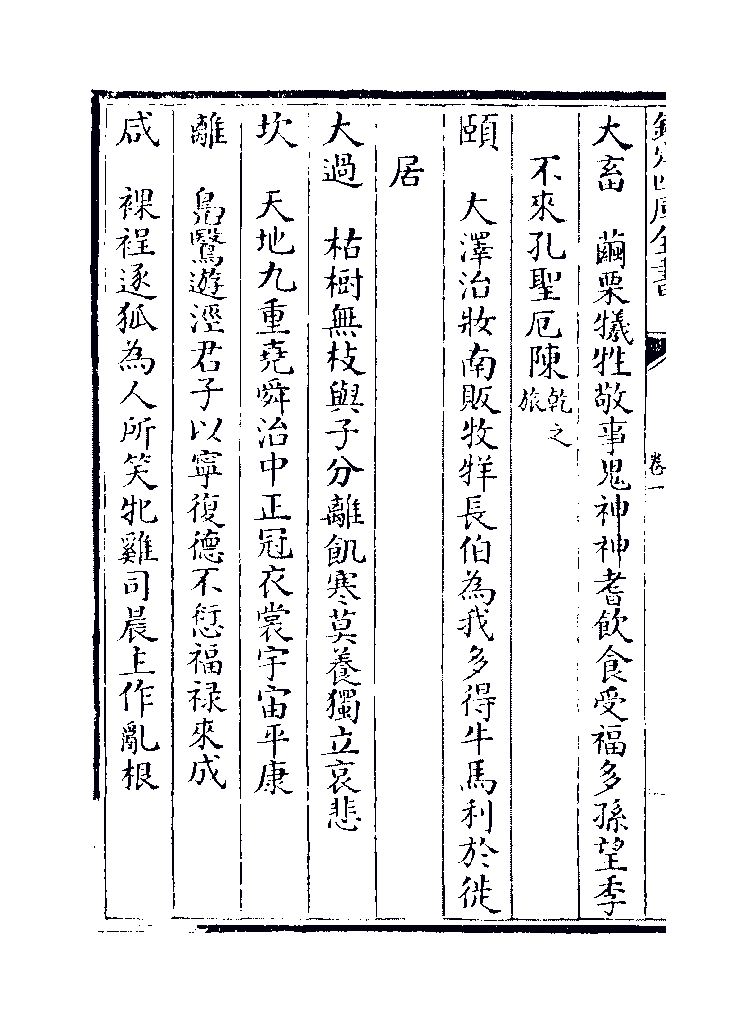 欽定四庫全書 卷一
大畜 繭栗犧牲敬事鬼神神耆飲食受福多孫望季
不來孔聖厄陳乾之旅
頤 大澤治妝南販牧牂長伯為我多得牛馬利於徙
居
大過 枯樹無枝與子分離飢寒莫養獨立哀悲
坎 天地九重堯舜治中正冠衣裳宇宙平康
離 鳬鷖遊涇君子以寧復德不愆福禄來成
咸 裸裎逐狐為人所笑牝雞司晨上作亂根